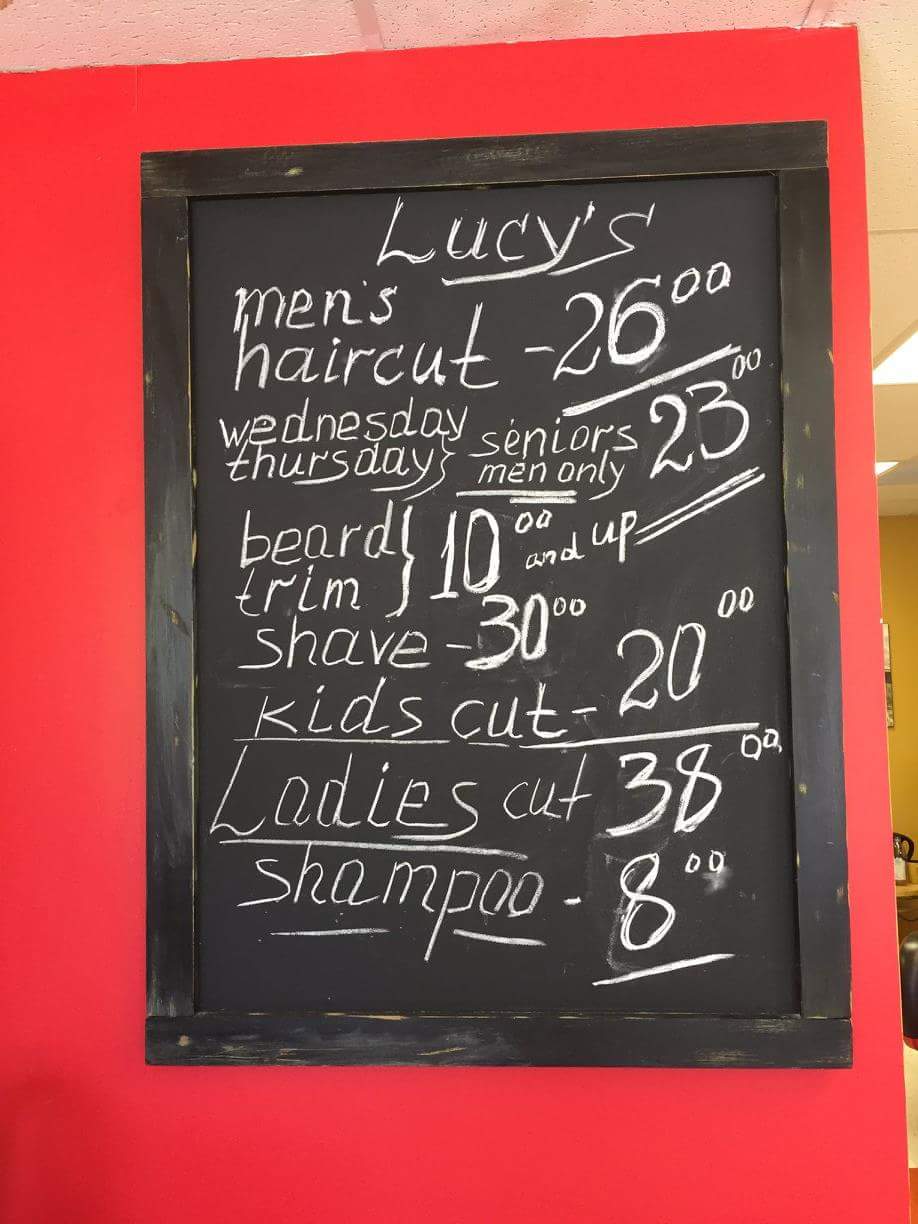 Lucy's
men's
haircut - 26 00
wednesday
thursday } seniors men only 23 00
beard
trim } 10 00 and up
shave - 30 00
kids cut - 20 00
Ladies cut 38 00
shampoo - 8 00